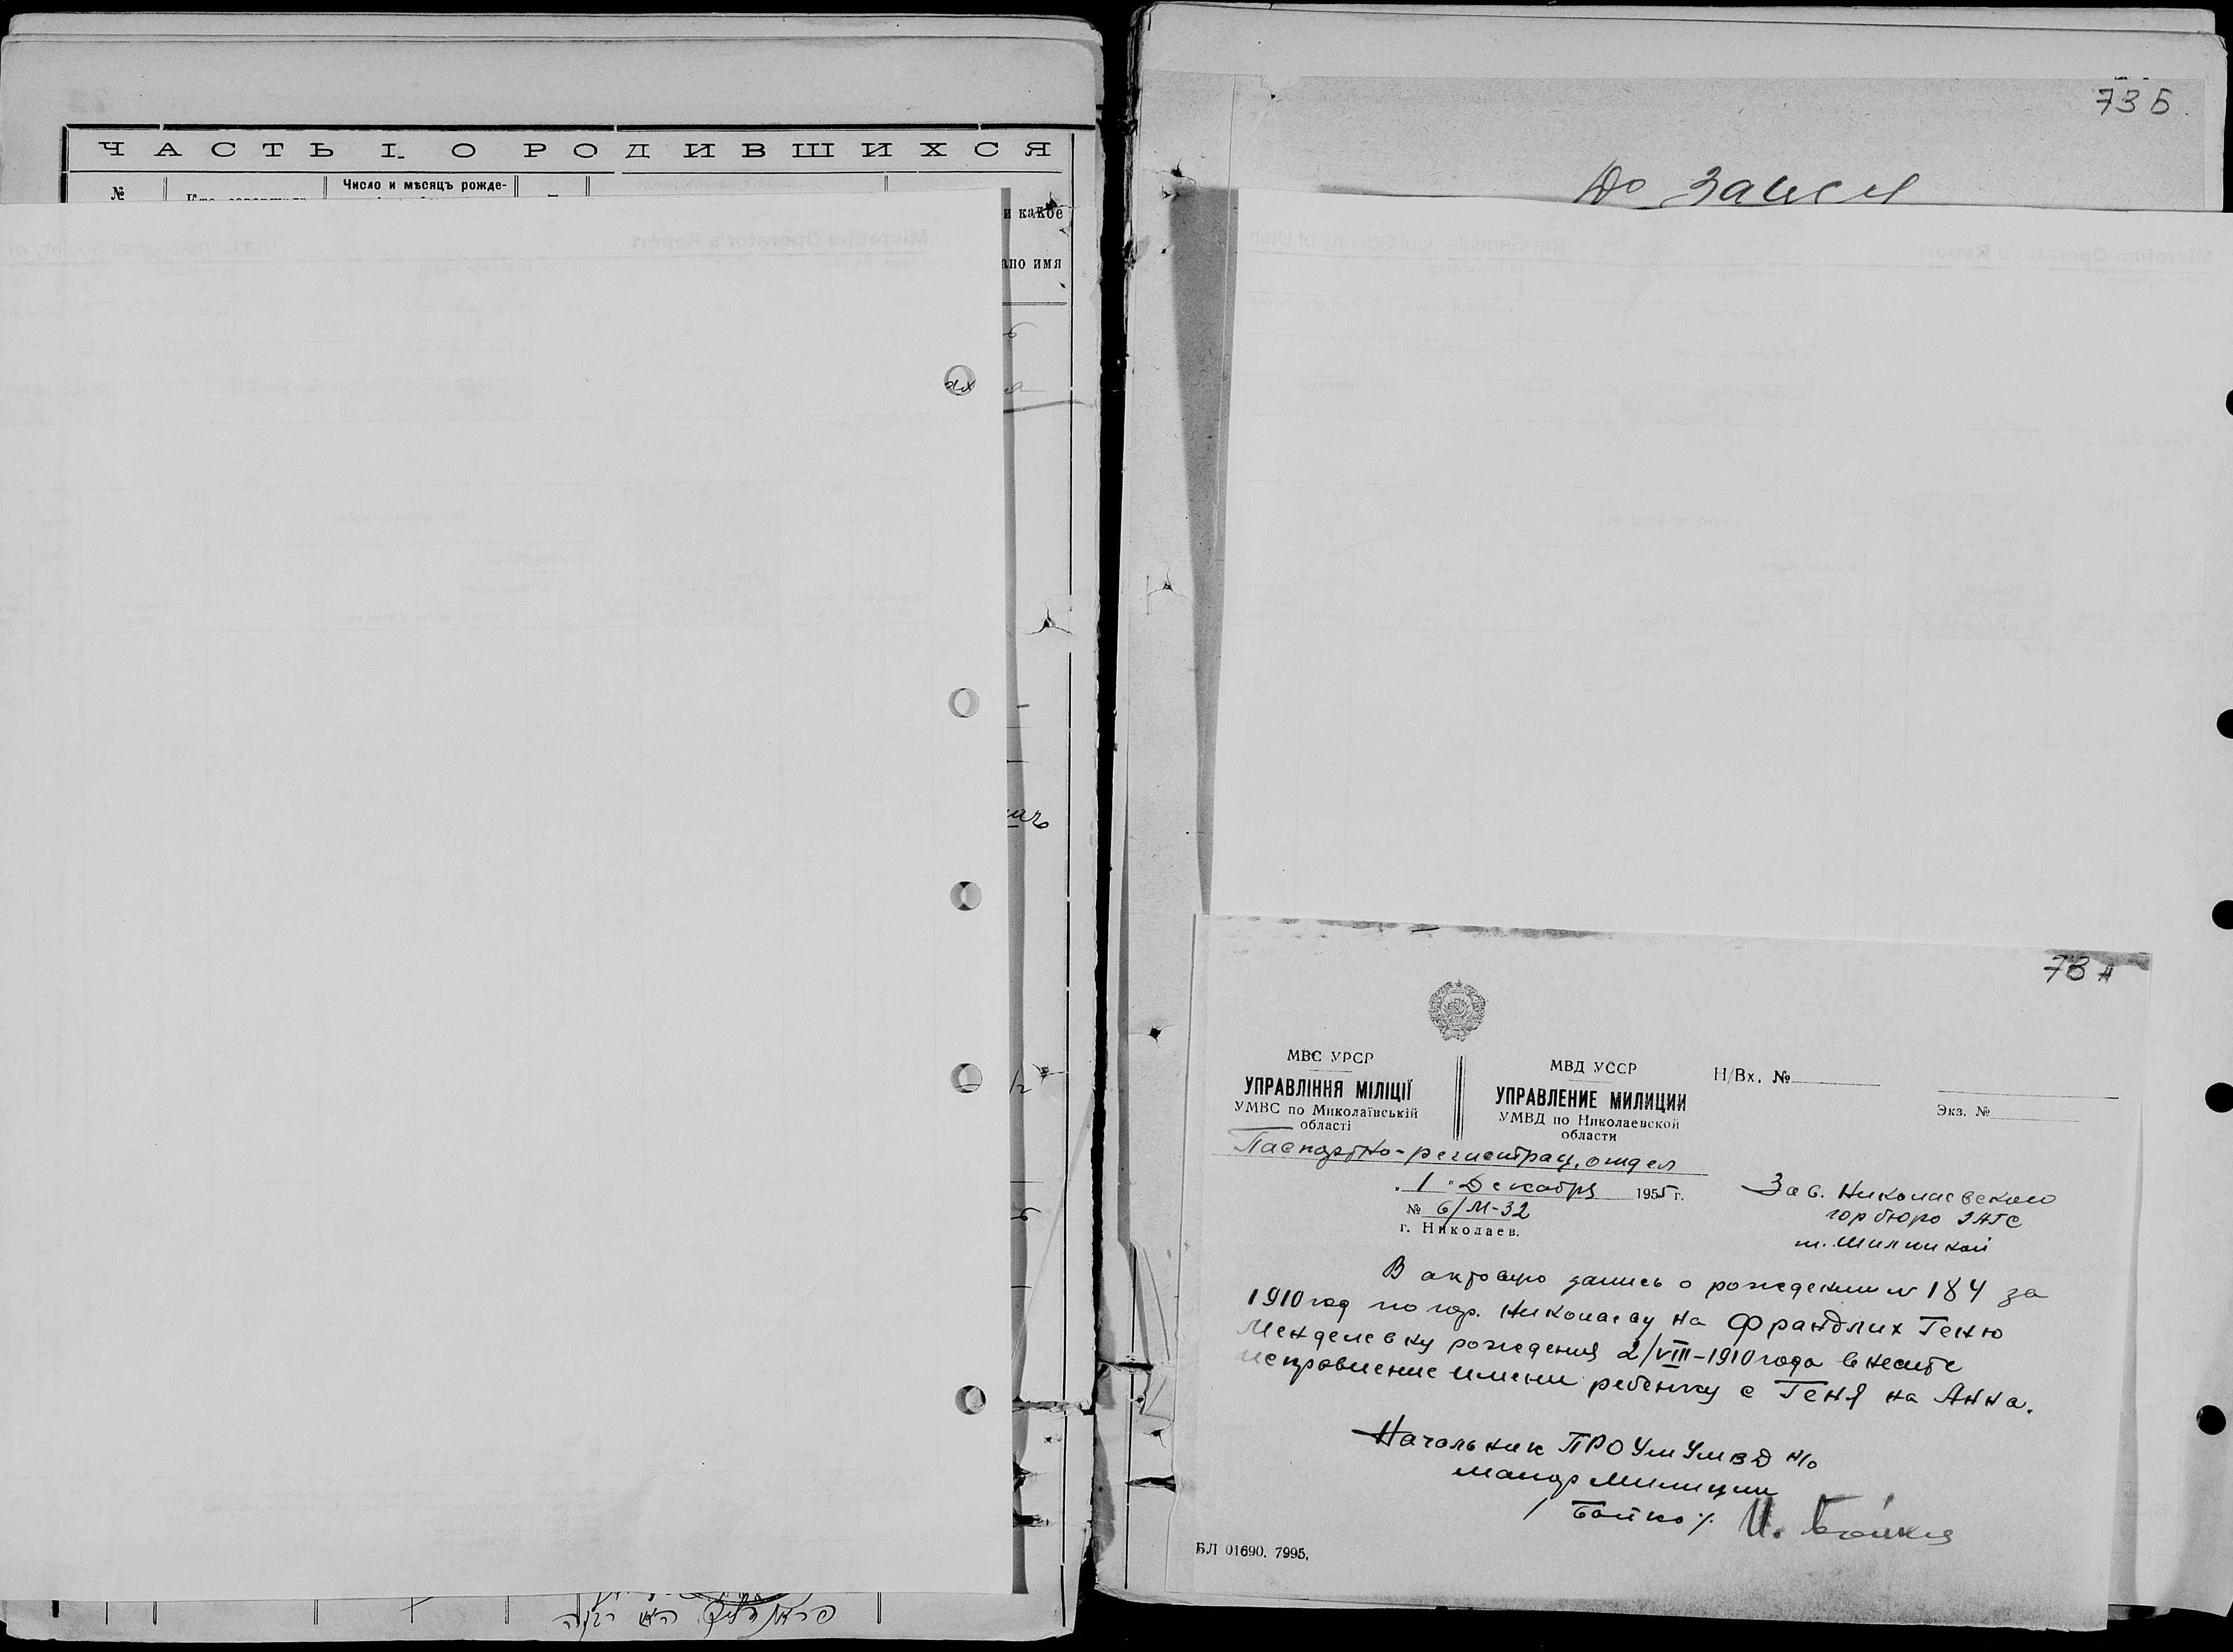 ЧАСТЬ I. О РОДИВШИХСЯ
№
Число и мѣсяцъ рожде-
и какое
но имя
ах
73 Б
До записи
73 А
МВС УРСР
УПРАВЛІННЯ МІЛІЦІЇ
УМВС по Миколаївській
області
МВД УССР
УПРАВЛЕНИЕ МИЛИЦИИ
УМВД по Николаевской
области
Н/Вх. №
Экз. №
Паспортно-регистрац. отдел
"1" Декабря 1955 г.
№ 6/М-32
г. Николаев.
Зав. Николаевского
горбюро ЗАГС
т.
В актовую запись о рождении № 184 за
1910 год по гор. Николаеву на Франдлих Геню
Менделевну рождения 2/VIII-1910 года внесите
исправление имени ребенку с Геня на Анна.
Начальник ПРО УМ УМВД Н/о
майор милиции
/Бойко/. И. Бойко
БЛ 01690. 7995.